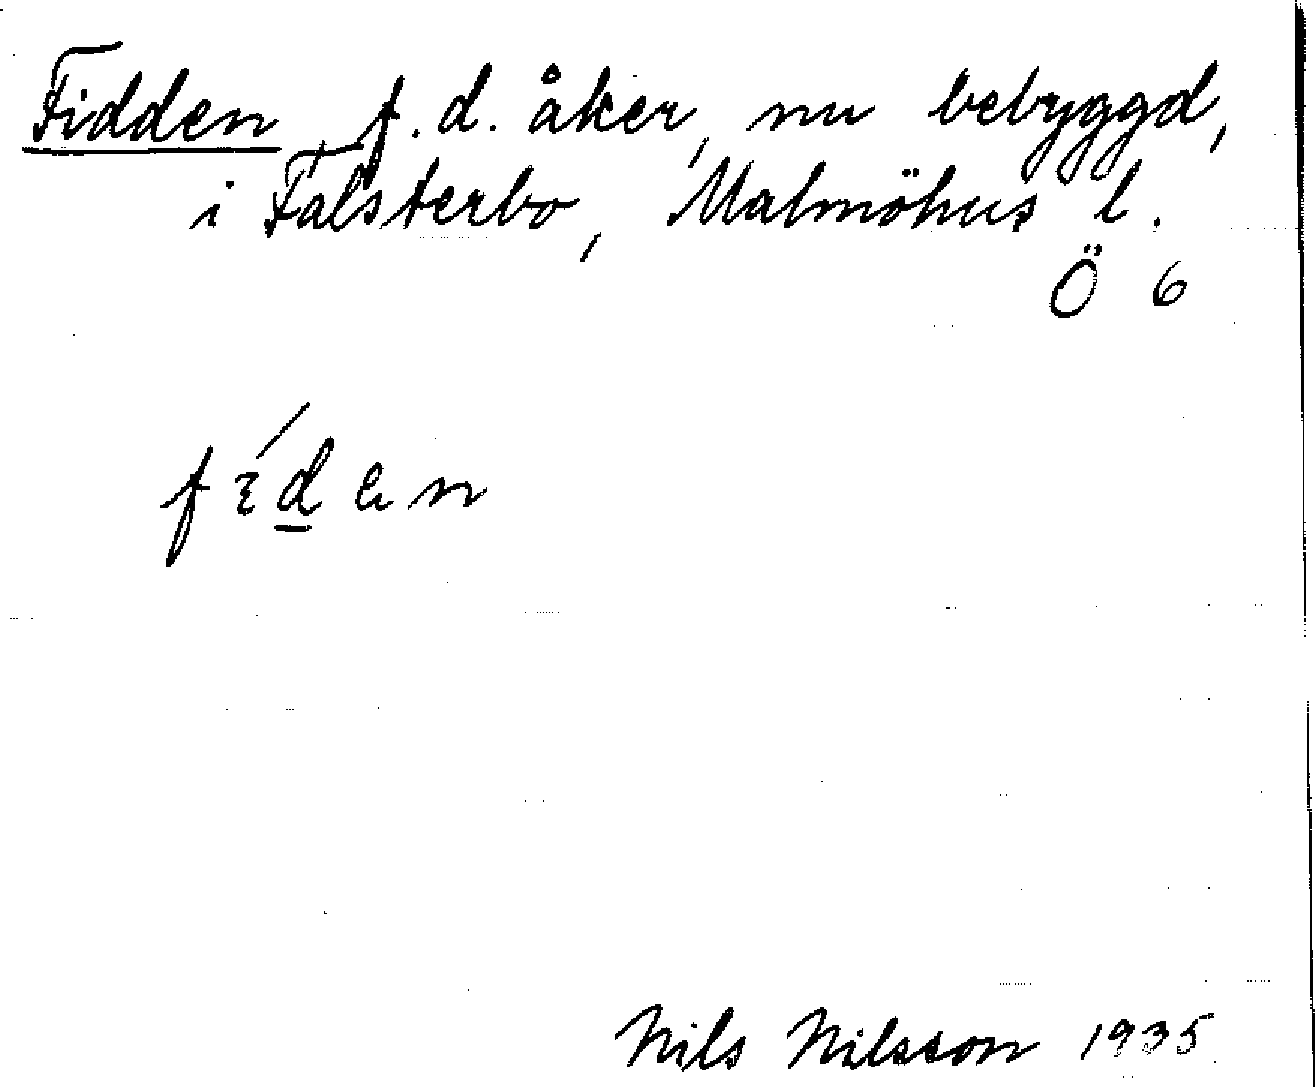 Fidden f.d. åker, nu bebyggd,
i Falsterbo, Malmöhus l.
Ö 6
Nils Nilsson 1935